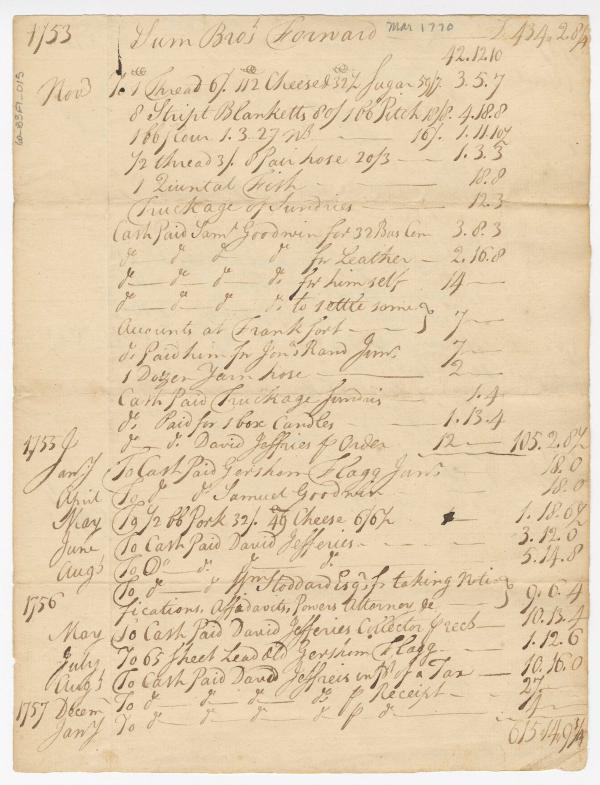 1753 Sum Bro.t Forward Mar 1770 434.2.8¾
42.12.10
Nov.r To 1 Thread 6/. 112 Cheese & 32 Sugar 3.5.7
8 Stript Blanketts 80/ 1 bb Pitch 18/8. 4.18.8
1 bb flour 1.3.27 16/. 1.11.10½
1/2 thread 3/. 8 pair hose 20/3 — 1.3.3
1 Quintal Fish — 18.8
Truckage of Sundries — 12.3
Cash Paid Sam.l Goodwin for 32 3.8.3
d.o — d.o — d.o d.o for Leather — 2.16.8
d.o — d.o — d.o — d.o for himself 14 —
d.o — d.o — d.o — d.o to settle some }
Accounts at Frankfort — } 7 —
d.o Paid him for Jon.a Rand Jun.r 7 —
1 Dozen Yarn hose — 2 —
Cash Paid Truckage Sundries — 1.4
d.o Paid for 1 box Candles — 1.13.4
d.o — d.o David Jeffries p Order 12 — 105.2.8½
1755
Jan.y To Cash Paid Gershom Flagg Jan.y 18.0
April To d.o d.o Samuel Goodwin — 18.0
May To 1/2 bb Pork 32/. 49 Cheese 6/6½ 1.18.6½
June To Cash Paid David Jefferies — 3.12.0
Aug.t To D.o — d.o d.o d.o 5.14.8
To d.o — d.o W.m Stoddard Esq.r for taking Notio }
1756 fications, Affidavits, Powers Attorney &c — } 9.6.4
May To Cash Paid David Jefferies Collector p rect — 10.13.4
July To 65 Sheet Lead Old Gershom Flagg — 1.12.6
Aug.t To Cash Paid David Jeffreis in p.t of a Tax — 10.16.0
Decem.r To d.o d.o d.o d.o p Receipt — 27 —
1757
Jan.y To d.o d.o d.o d.o p d.o — 14 —
615.14.9¾